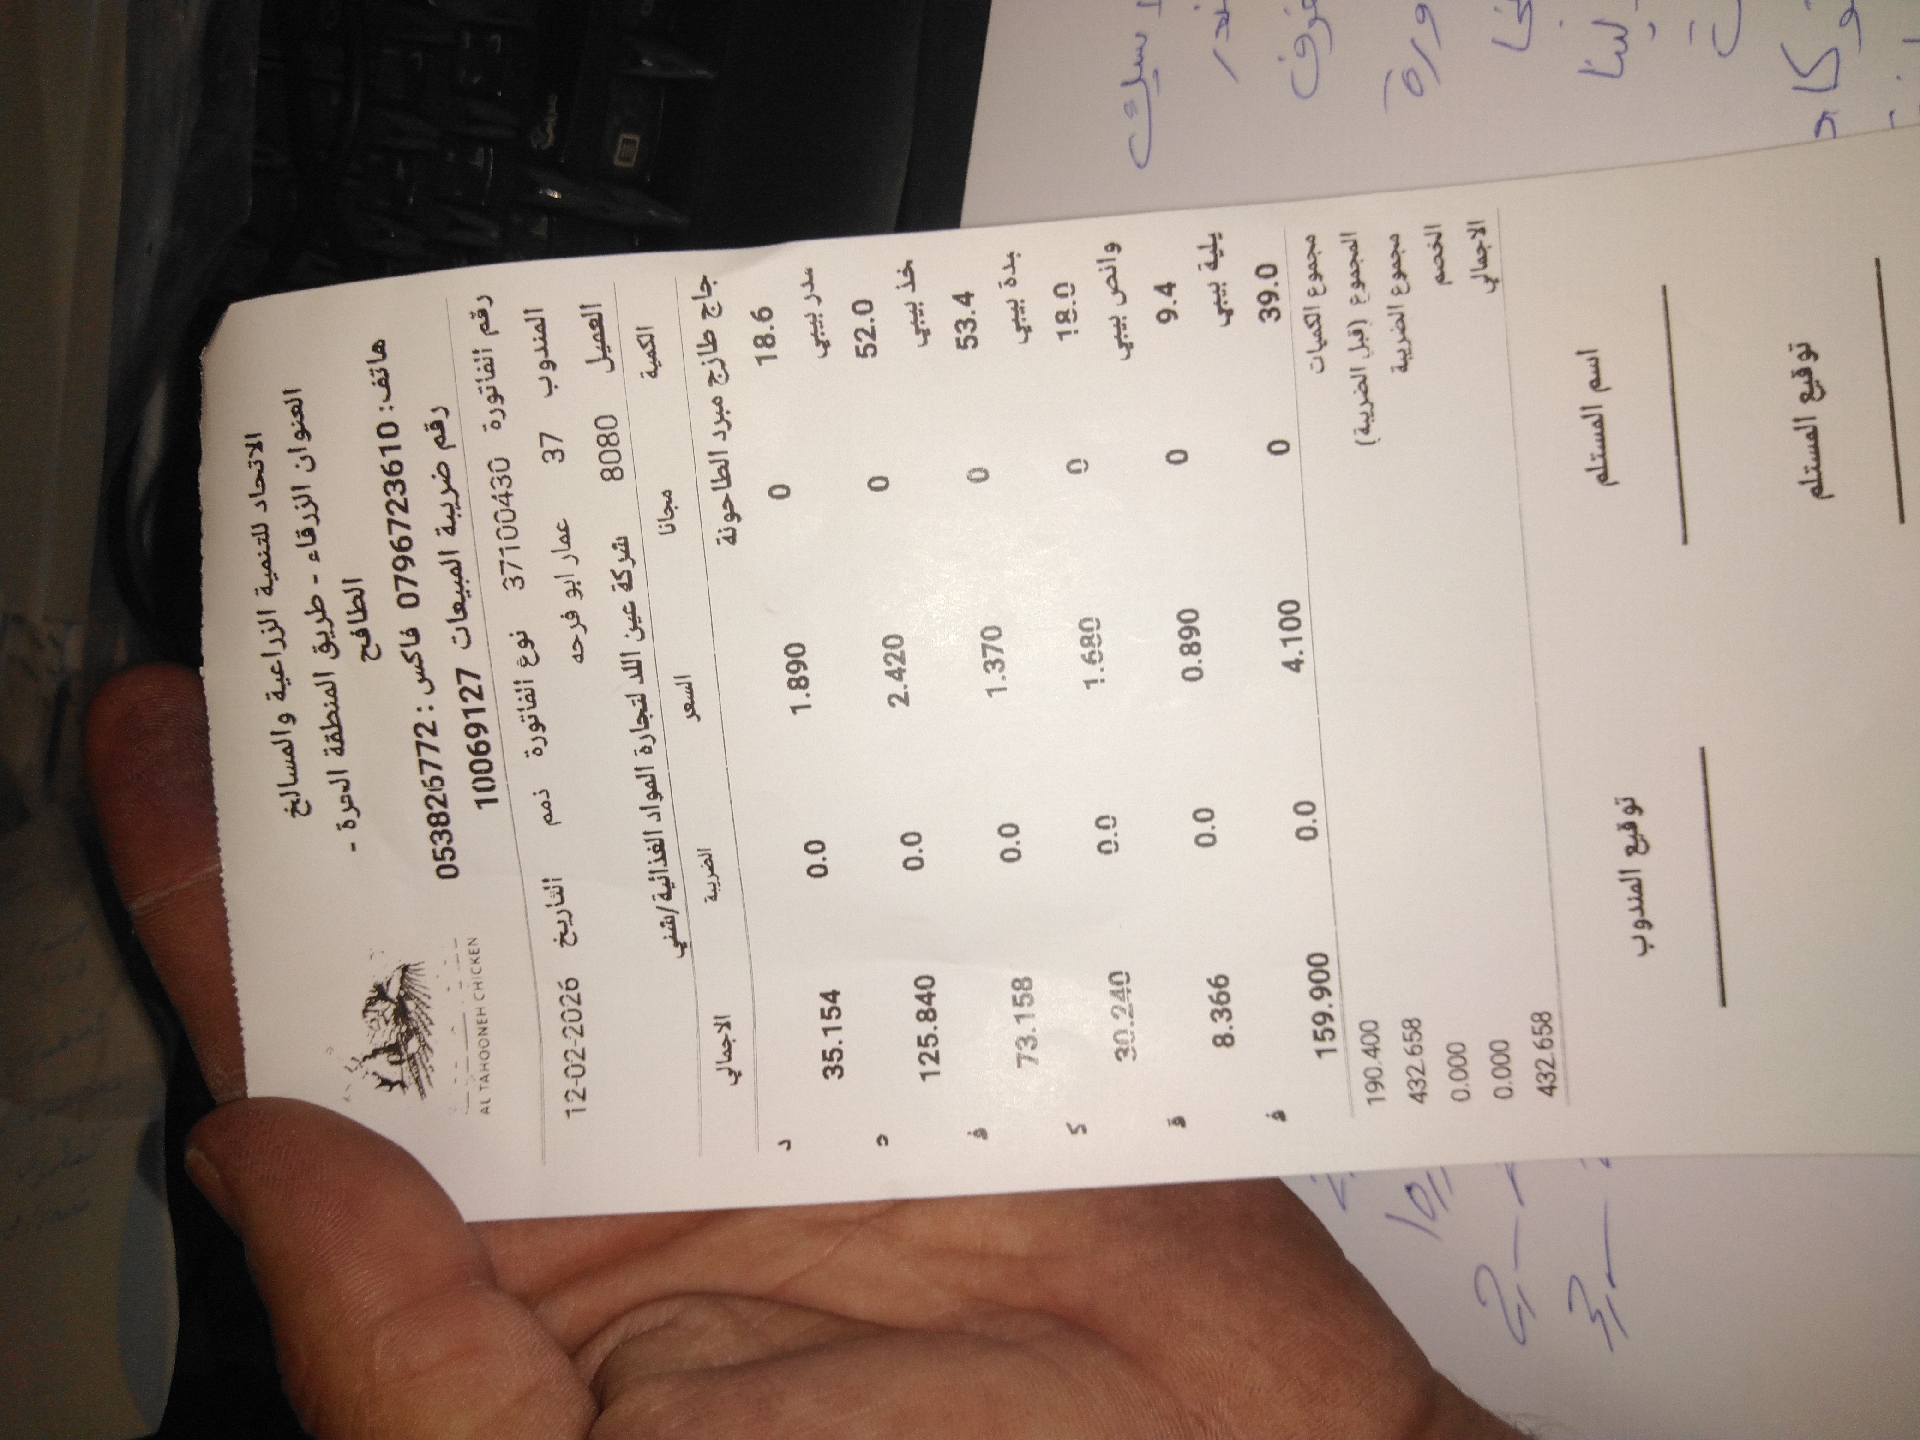 الاتحاد للتنمية الزراعية والمسالخ
العنوان الزرقاء - طريق المنطقة الحرة -
الطافح
هاتف: 0796723610 فاكس: 053826772
رقم ضريبة المبيعات 10069127
AL TAHOONEH CHICKEN
رقم الفاتورة 37100430 نوع الفاتورة ذمم التاريخ 12-02-2026
المندوب 37 عمار ابو فرحه
العميل 8080 شركة عين اللد لتجارة المواد الغذائية/شني
الكمية مجانا السعر الضريبة الاجمالي
جاج طازج مبرد الطاحونة د
18.6 0 1.890 0.0 35.154
سدر بيبي د
52.0 0 2.420 0.0 125.840
خذ بيبي ف
53.4 0 1.370 0.0 73.158
بدة بيبي ك
18.0 0 1.680 0.0 30.240
وانص بيبي ق
9.4 0 0.890 0.0 8.366
يلية بيبي ف
39.0 0 4.100 0.0 159.900
مجموع الكميات 190.400
المجموع (قبل الضريبة) 432.658
مجموع الضريبة 0.000
الخصم 0.000
الاجمالي 432.658
اسم المستلم توقيع المندوب
توقيع المستلم